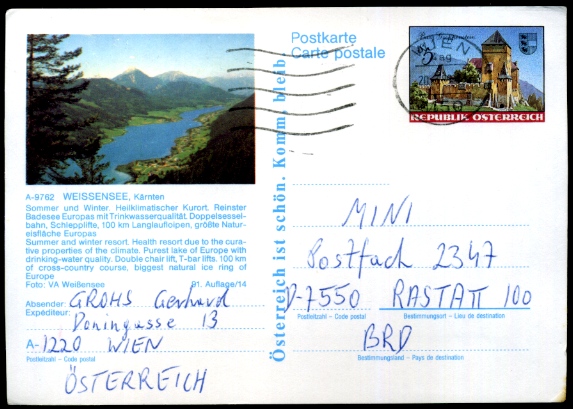 Postkarte
Carte postale
Österreich ist schön. Komm, bleib
WIEN
REPUBLIK ÖSTERREICH
A-9762 WEISSENSEE, Kärnten
Sommer und Winter. Heilklimatischer Kurort. Reinster
Badesee Europas mit Trinkwasserqualität. Doppelsessel-
bahn, Schlepplifte, 100 km Langlaufloipen, größte Natur-
eisfläche Europas
Summer and winter resort. Health resort due to the cura-
tive properties of the climate. Purest lake of Europe with
drinking-water quality. Double chair lift, T-bar lifts. 100 km
of cross-country course, biggest natural ice ring of
Europe
Foto: VA Weißensee 91. Auflage/14
Absender: GROHS Gerhard
Expéditeur:
Doningasse 13
A-1220 WIEN
Postleitzahl - Code postal
ÖSTERREICH
MINI
Postfach 2347
D-7550 RASTATT 100
Postleitzahl - Code postal Bestimmungsort - Lieu de destination
BRD
Bestimmungsland - Pays de destination